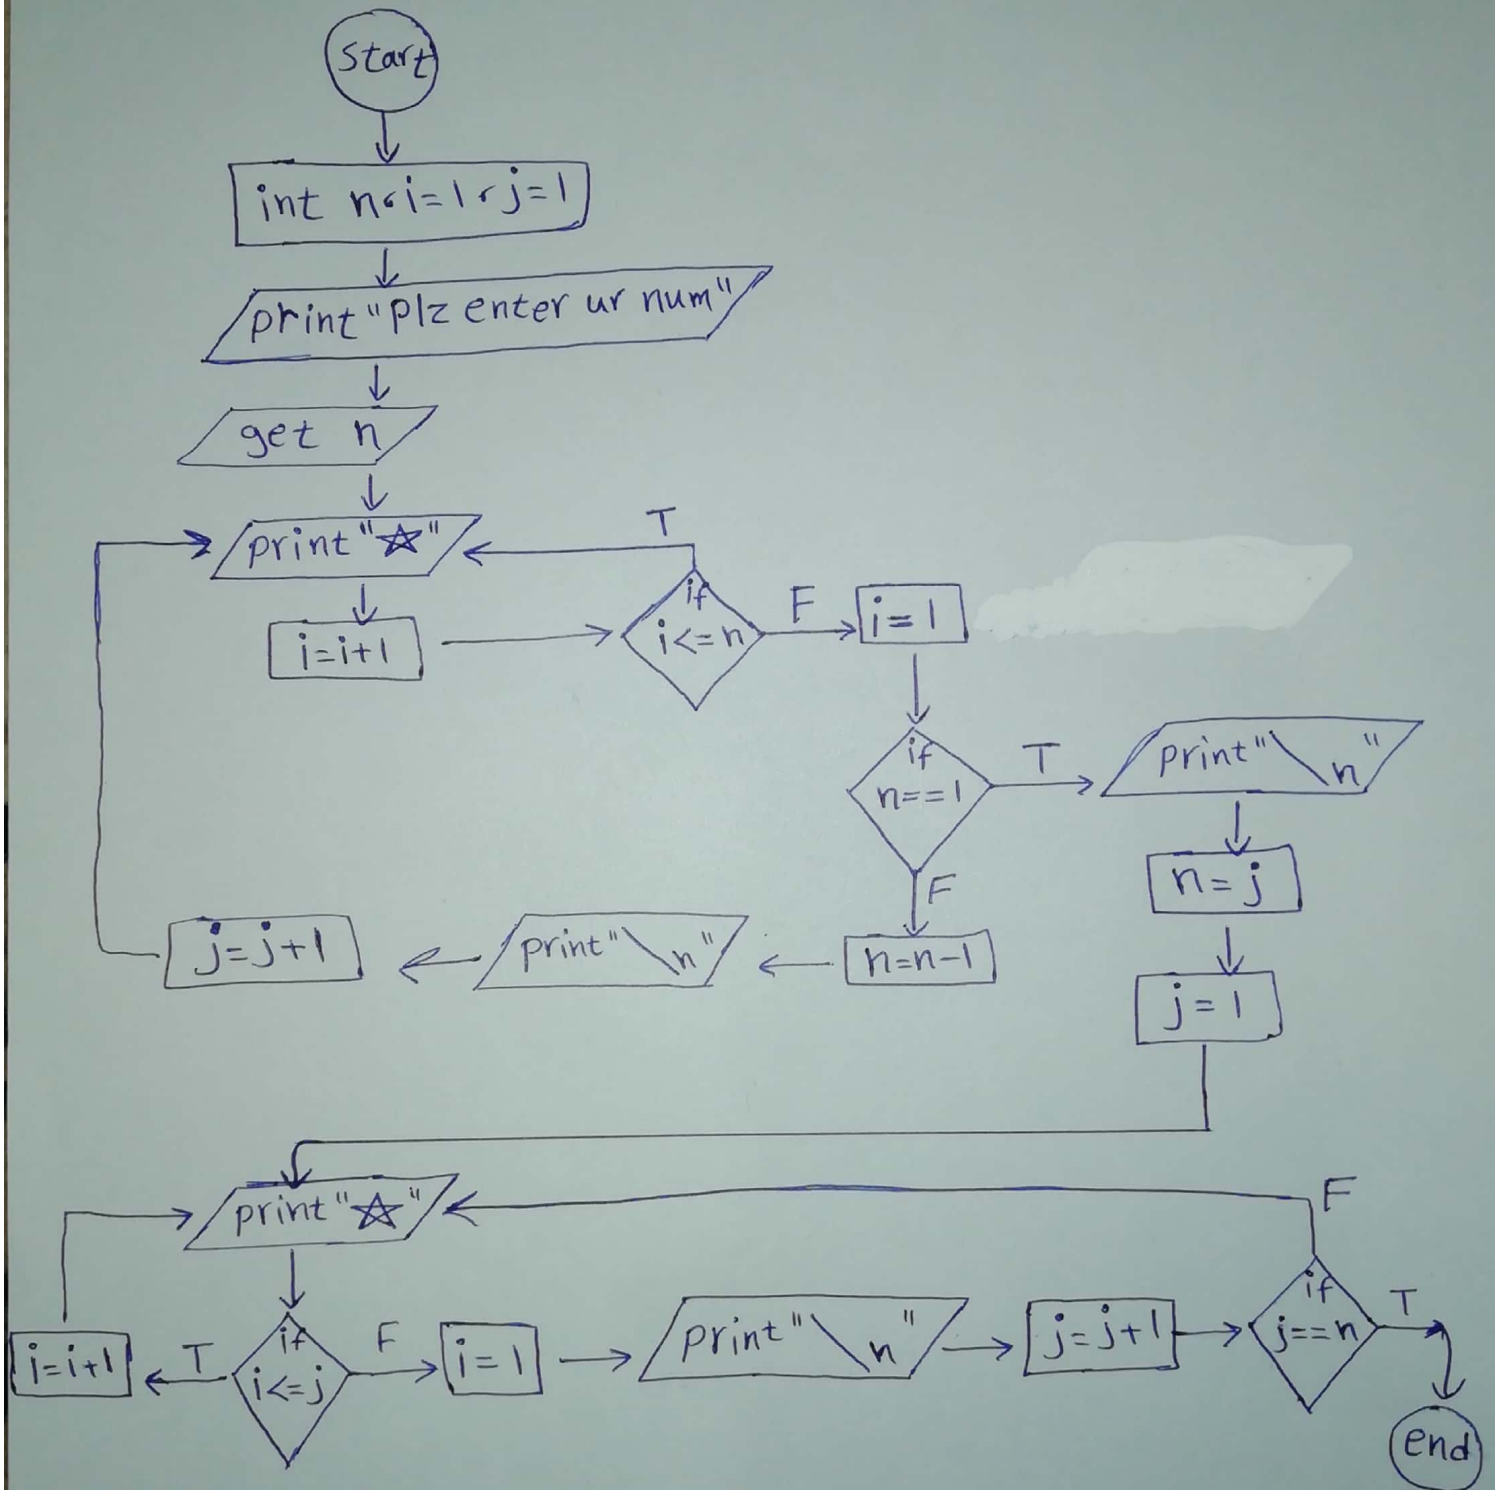 start
int n،i=1،j=1
print "Plz enter ur num"
get n
print "☆"
T
i=i+1
if
i<=n
F
i=1
if
n==1
T
print "\n"
F
n=j
n=n-1
print "\n"
j=j+1
j=1
print "☆"
F
i=i+1
T
if
i<=j
F
i=1
print "\n"
j=j+1
if
j==n
T
end